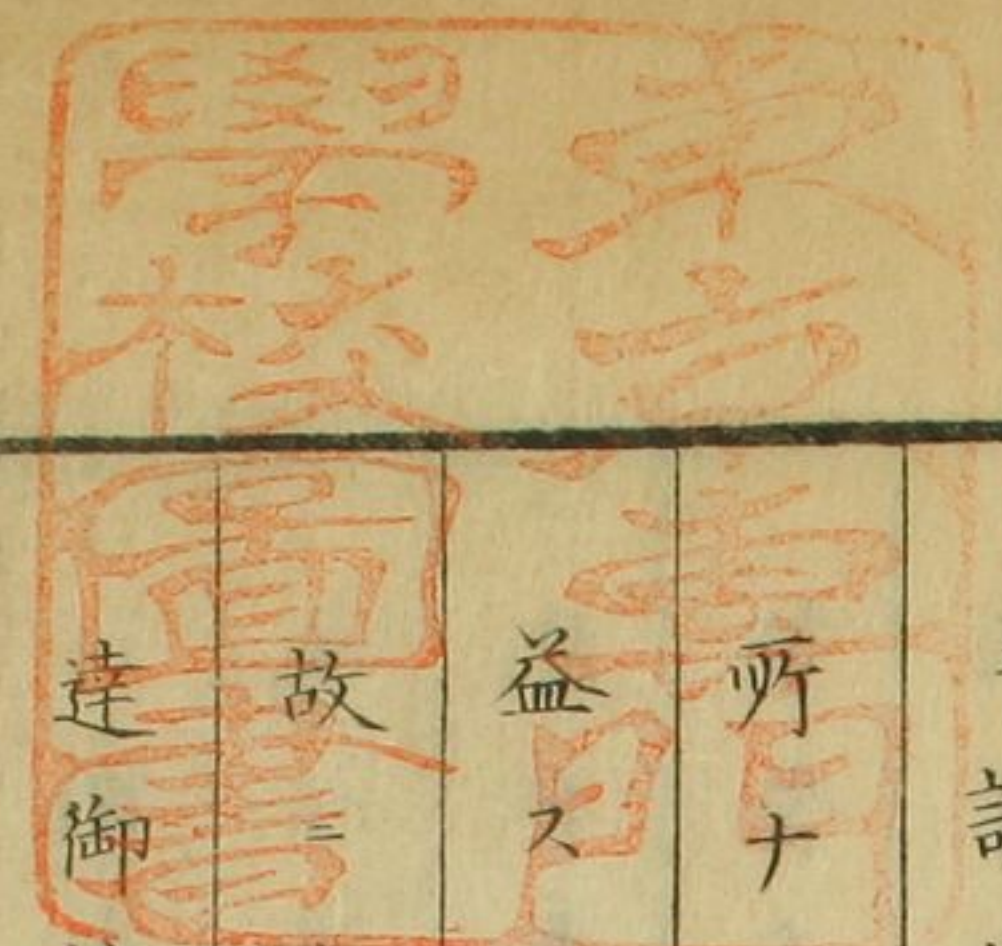 東京專門
學校圖書
所ナ
益ス
故ニ
達御